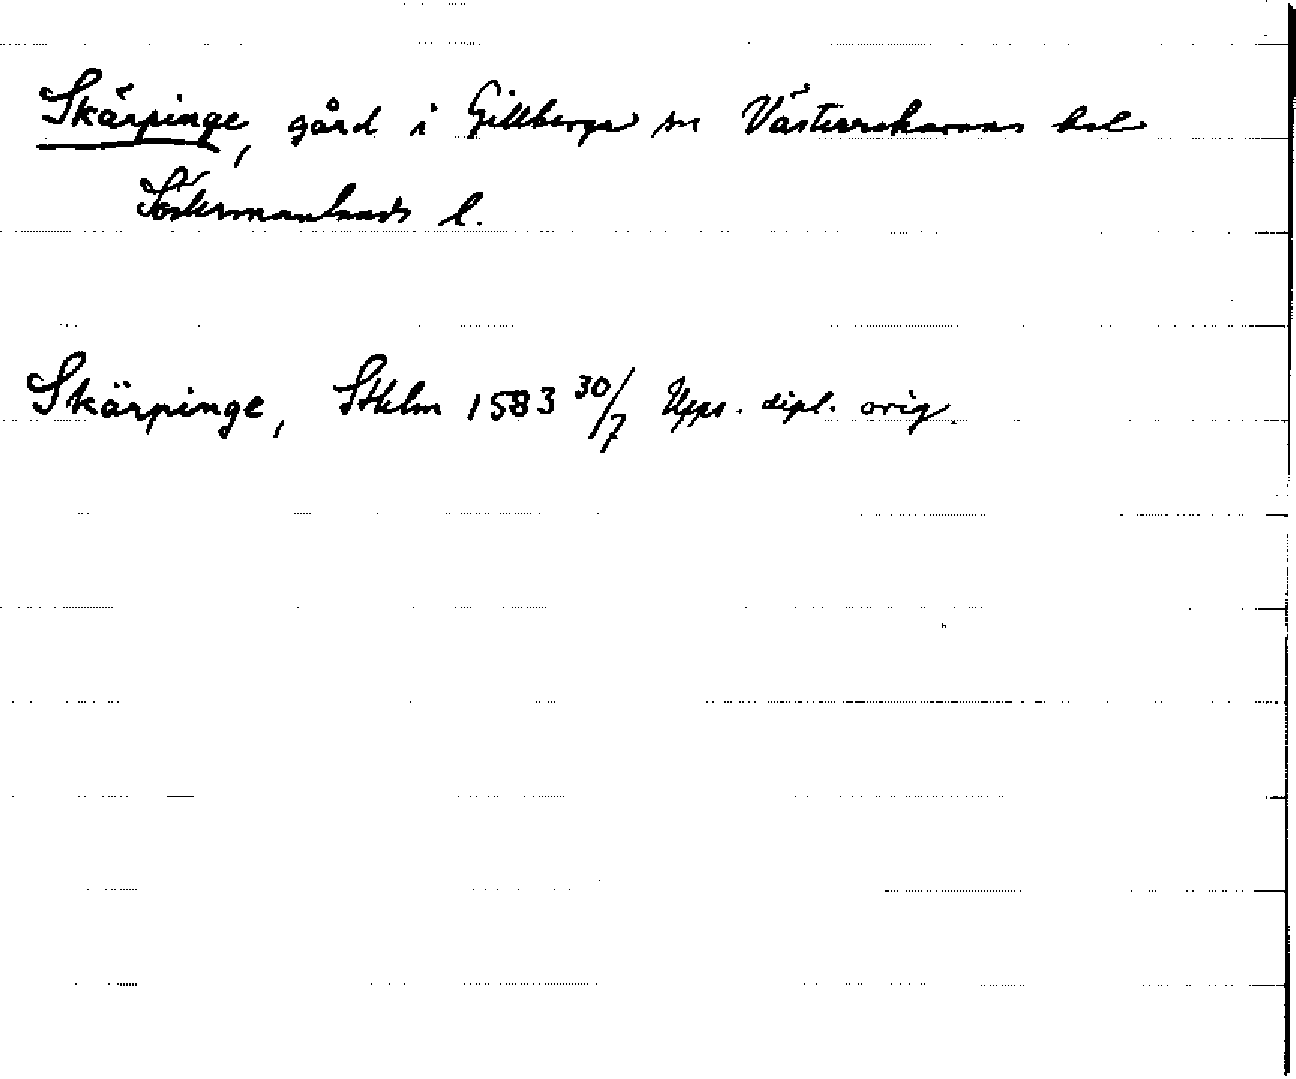 Skärpinge, gård i Gillberga sn Västerrekarnes hd
Södermanlands l.
Skärpinge, Sthlm 1583 30/7 Upps. dipl. orig.